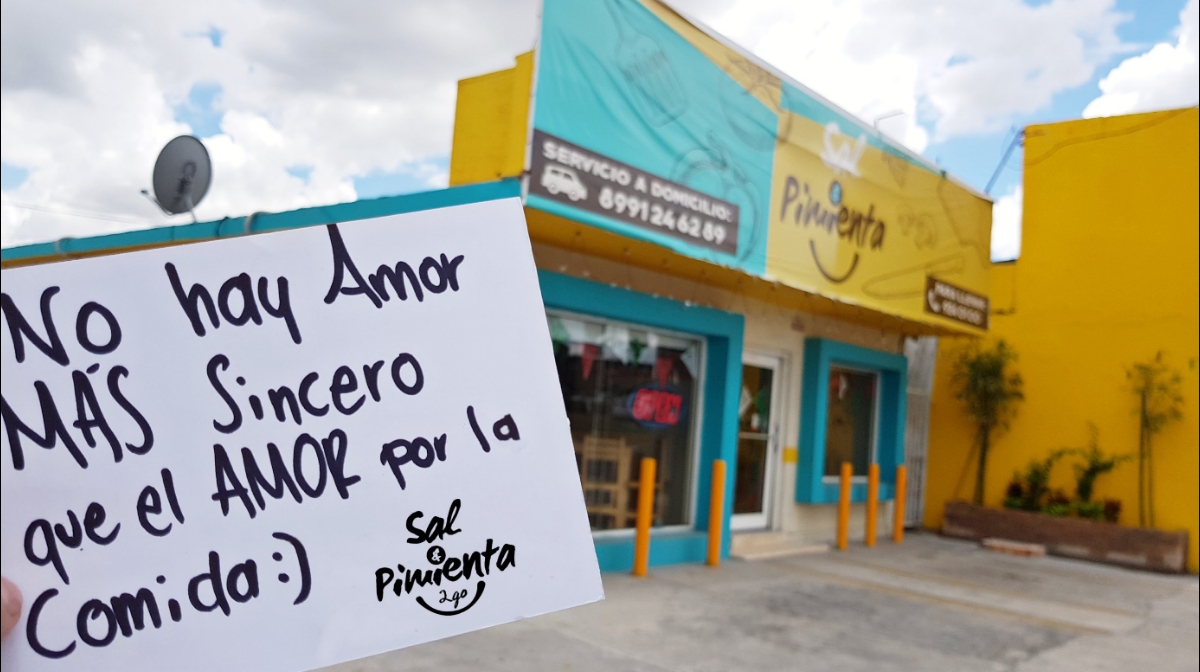 No hay Amor
MÁS Sincero
que el AMOR por la
Comida :)
Sal
&
Pimienta
2go
SERVICIO A DOMICILIO:
8991246289
Sal
&
Pimienta
OPEN